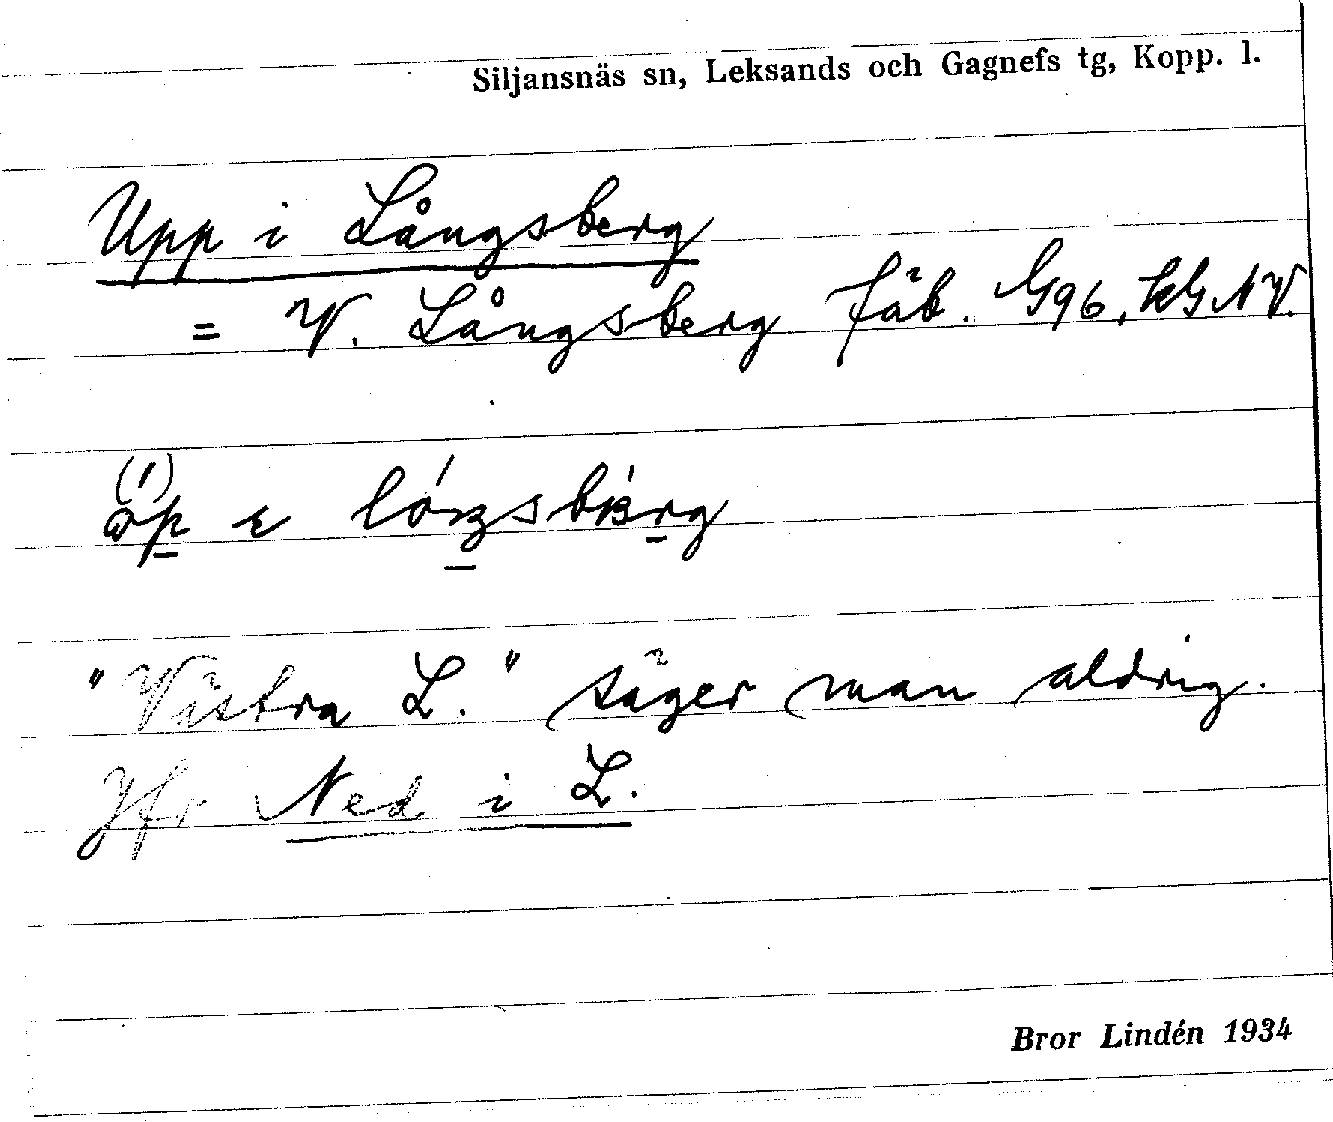 Siljansnäs sn, Leksands och Gagnefs tg, Kopp. l.
Upp i Långsberg
= V. Långsberg fäb. G96, kG NV.
"Västra L." säger man aldrig.
Jfr Ned i L.
Bror Lindén 1934